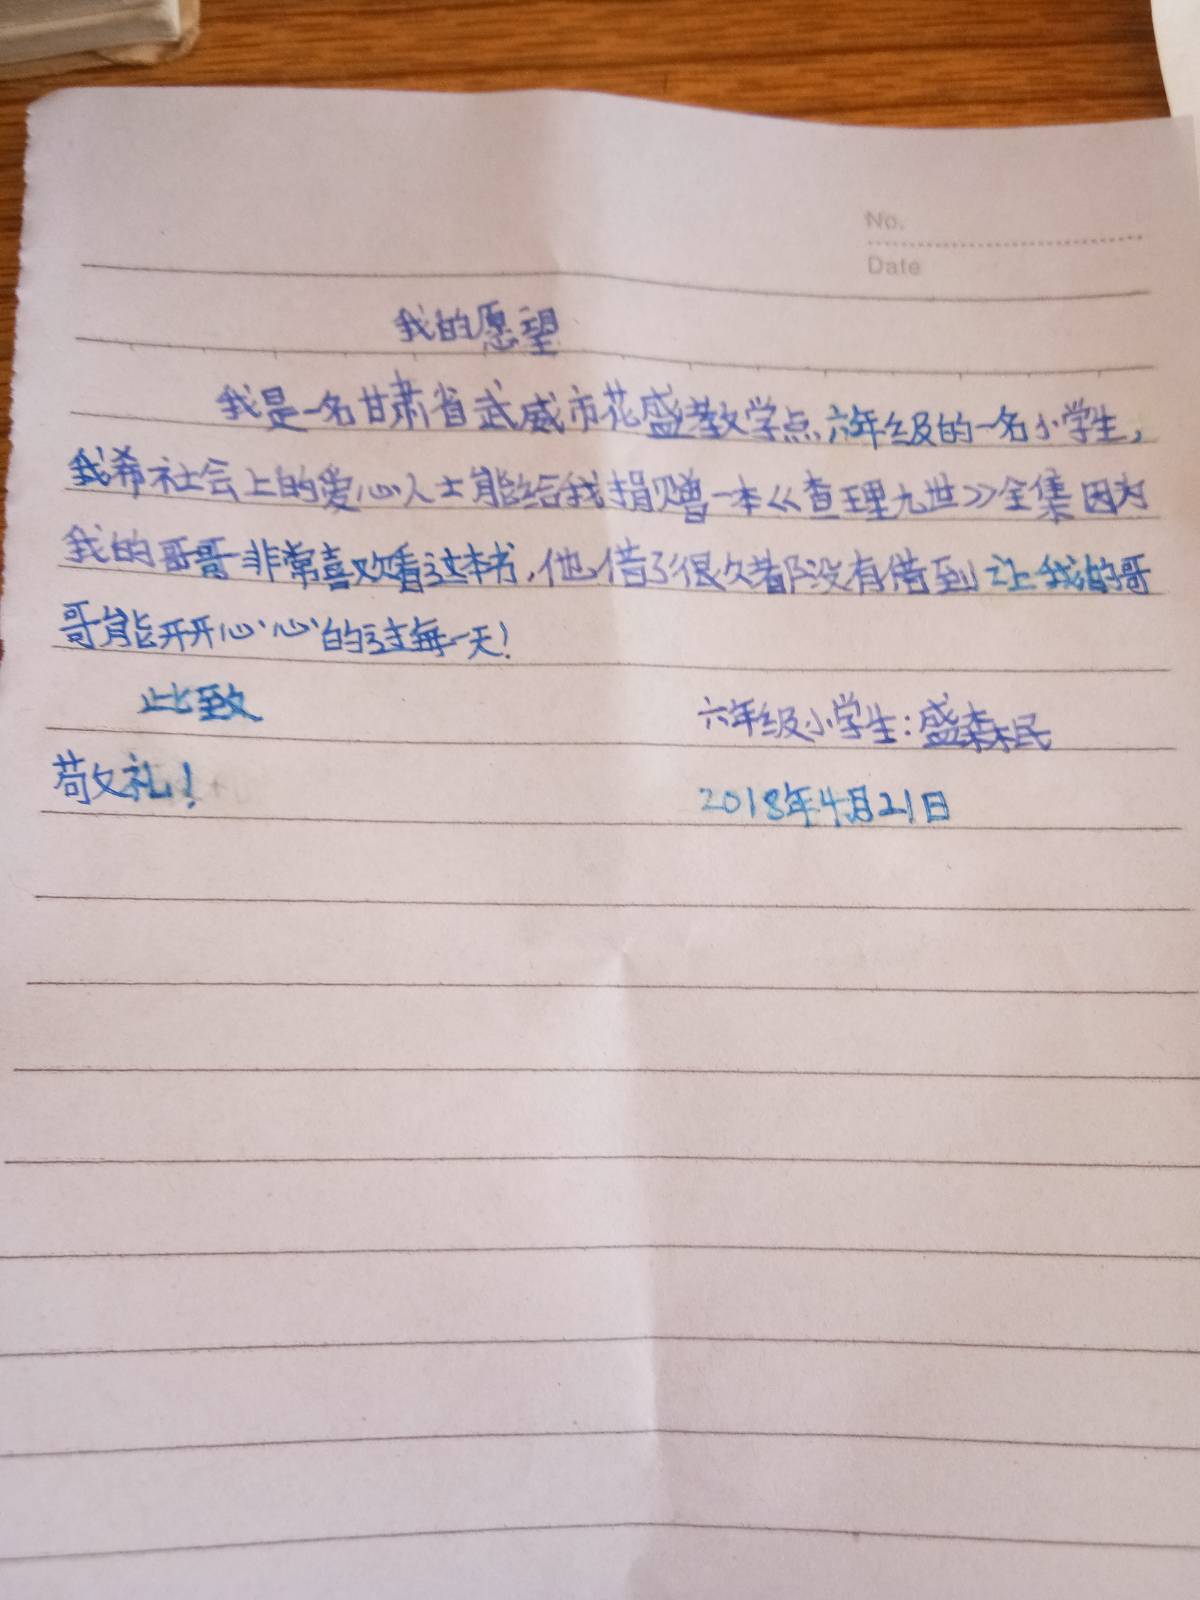 No.
Date
我的愿望
我是一名甘肃省武威市花盛教学点六年级的一名小学生，
我希社会上的爱心人士能给我捐赠一本《查理九世》全集因为
我的哥哥非常喜欢看这本书，他借了很久都没有借到让我的哥
哥能开开心心的过每一天！
此致
六年级小学生：盛森民
敬礼！
2018年4月21日